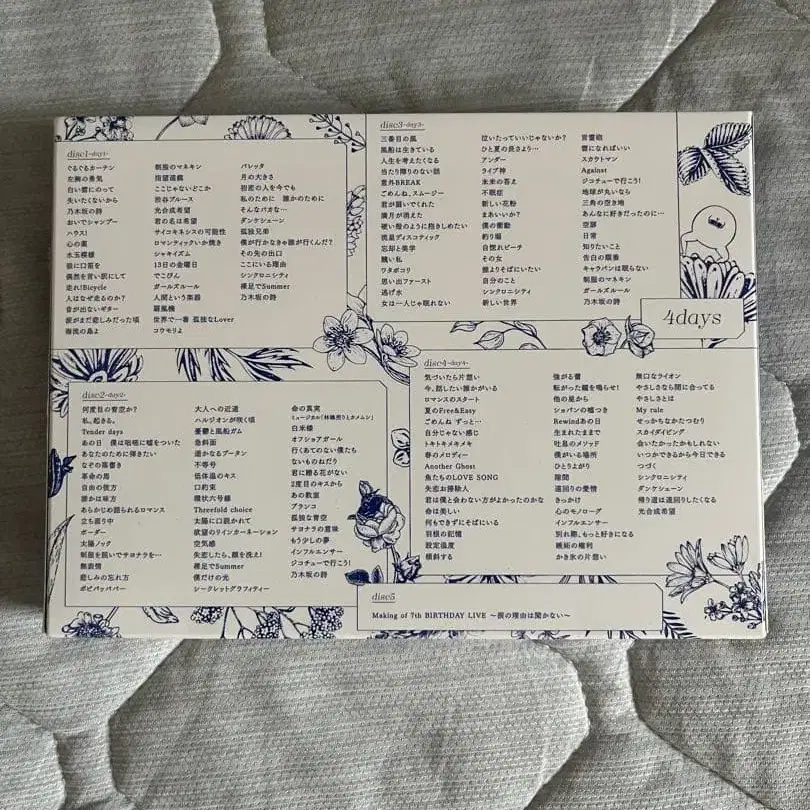 disc1-day1-
ぐるぐるカーテン
左胸の勇気
白い雲にのって
失いたくないから
乃木坂の詩
おいでシャンプー
ハウス!
心の薬
水玉模様
狼に口笛を
偶然を言い訳にして
走れ!Bicycle
人はなぜ走るのか?
音が出ないギター
涙がまだ悲しみだった頃
海流の島よ
制服のマネキン
指望遠鏡
ここじゃないどこか
渋谷ブルース
光合成希望
君の名は希望
サイコキネシスの可能性
ロマンティックいか焼き
シャキイズム
13日の金曜日
でこぴん
ガールズルール
人間という楽器
扇風機
世界で一番 孤独なLover
コウモリよ
バレッタ
月の大きさ
初恋の人を今でも
私のために 誰かのために
そんなバカな…
ダンケシェーン
孤独兄弟
僕が行かなきゃ誰が行くんだ?
その先の出口
ここにいる理由
シンクロニシティ
裸足でSummer
乃木坂の詩
disc2-day2-
何度目の青空か?
私、起きる。
Tender days
あの日 僕は咄嗟に嘘をついた
あなたのために弾きたい
なぞの落書き
革命の馬
自由の彼方
誰かは味方
あらかじめ語られるロマンス
立ち直り中
ボーダー
太陽ノック
制服を脱いでサヨナラを…
無表情
悲しみの忘れ方
ポピパッパパー
大人への近道
ハルジオンが咲く頃
憂鬱と風船ガム
急斜面
遥かなるブータン
不等号
低体温のキス
口約束
環状六号線
Threefold choice
太陽に口説かれて
欲望のリインカーネーション
空気感
失恋したら、顔を洗え!
裸足でSummer
僕だけの光
シークレットグラフィティー
命の真実
ミュージカル「林檎売りとカメムシ」
白米様
オフショアガール
行くあてのない僕たち
ないものねだり
君に贈る花がない
2度目のキスから
あの教室
ブランコ
孤独な青空
サヨナラの意味
もう少しの夢
インフルエンサー
ジコチューで行こう!
乃木坂の詩
disc3-day3-
三番目の風
風船は生きている
人生を考えたくなる
当たり障りのない話
意外BREAK
ごめんね、スムージー
君が扱いてくれた
満月が消えた
硬い殻のように抱きしめたい
流星ディスコティック
忘却と美学
醜い私
ワタボコリ
思い出ファースト
逃げ水
女は一人じゃ眠れない
泣いたっていいじゃないか?
ひと夏の長さより…
アンダー
ライブ神
未来の答え
不眠症
新しい花粉
まあいいか?
僕の衝動
釣り堀
自惚れビーチ
その女
誰よりそばにいたい
自分のこと
シンクロニシティ
新しい世界
言霊砲
雲になればいい
スカウトマン
Against
ジコチューで行こう!
地球が丸いなら
三角の空き地
あんなに好きだったのに…
空扉
日常
知りたいこと
告白の順番
キャラバンは眠らない
制服のマネキン
ガールズルール
乃木坂の詩
4days
disc4-day4-
気づいたら片想い
今、話したい誰かがいる
ロマンスのスタート
夏のFree&Easy
ごめんね ずっと…
自分じゃない感じ
トキトキメキメキ
春のメロディー
Another Ghost
魚たちのLOVE SONG
失恋お掃除人
君は僕と会わない方がよかったのかな
命は美しい
何もできずにそばにいる
羽根の記憶
設定温度
傾斜する
強がる蕾
転がった鐘を鳴らせ!
他の星から
ショパンの嘘つき
Rewindあの日
生まれたままで
吐息のメソッド
僕がいる場所
ひとりよがり
隙間
遠回りの愛情
きっかけ
心のモノローグ
インフルエンサー
別れ際、もっと好きになる
嫉妬の権利
かき氷の片想い
無口なライオン
やさしさなら間に合ってる
やさしさとは
My rule
せっかちなかたつむり
スカイダイビング
会いたかったかもしれない
いつかできるから今日できる
つづく
シンクロニシティ
ダンケシェーン
帰り道は遠回りしたくなる
光合成希望
disc5
Making of 7th BIRTHDAY LIVE ～涙の理由は聞かない～